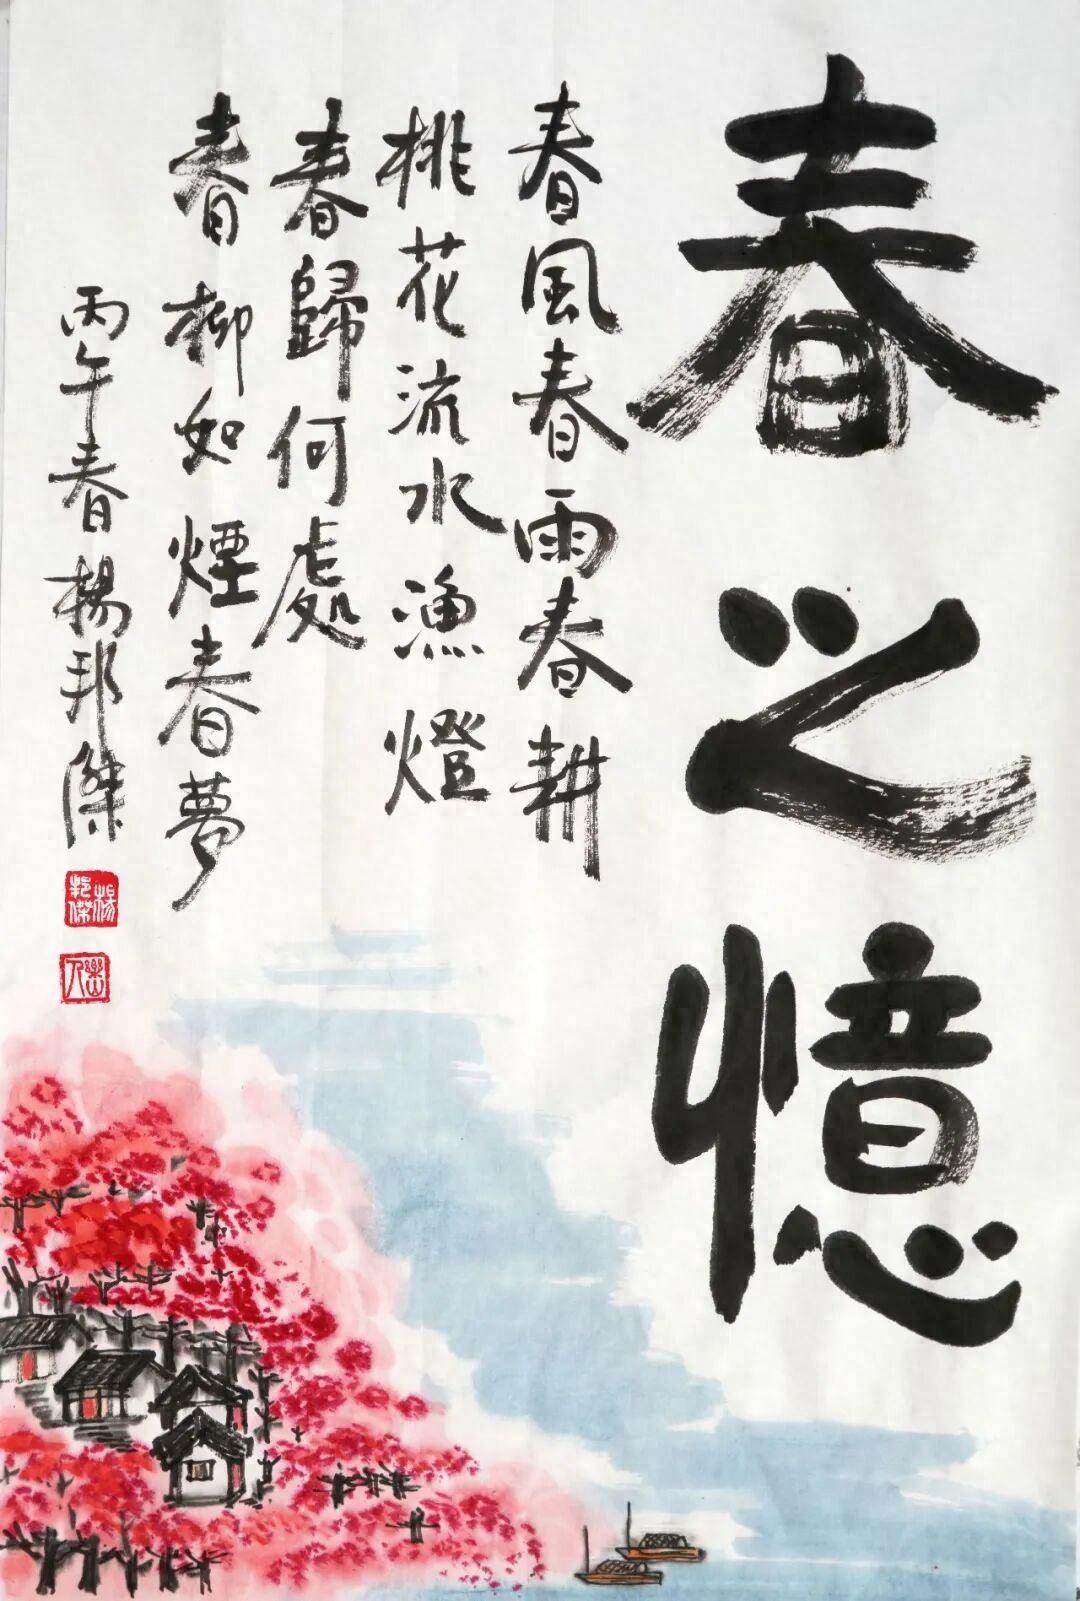 春之憶
春風春雨春耕
桃花流水漁燈
春歸何處
春柳如煙春夢
丙午春楊邦傑
楊邦傑